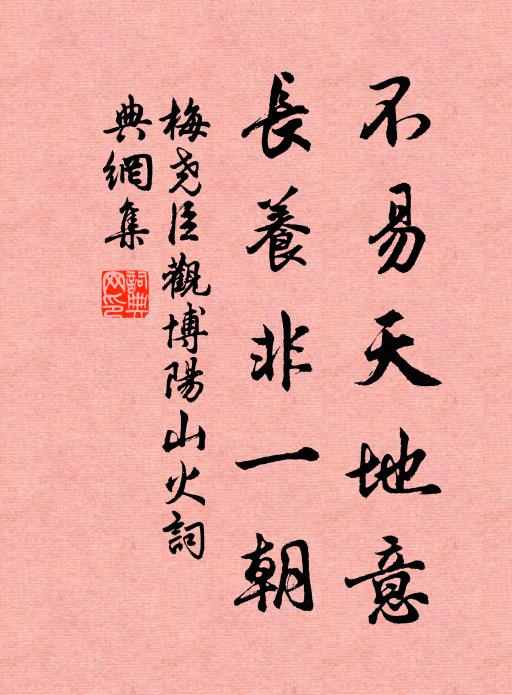 不易天地意
長養非一朝
梅堯臣觀博陽山火詞
典網集
詞典網印